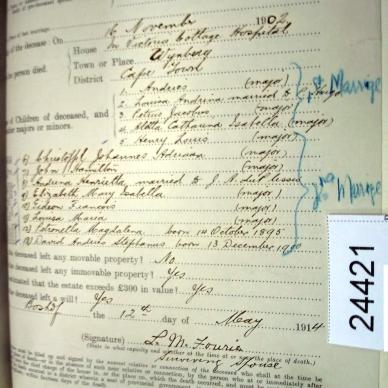 16 Novembe 1902
of the decease: On
House In Victoria Cottage Hospital
the person died.
Town or Place Wynberg
District Cape Town
1. Andries (major)
2. Louisa Andrina married to
3. Petrus Jacobus (major)
of Children of deceased, and
4. Aletta Catharina Isabella (major)
majors or minors.
5 Henry Louis (major)
1st Marriage
6) Christoffel Johannes Adriaan (major)
7) John Hamilton (major)
8) Andrina Henrietta married to J. A.
9) Elizabeth Maria Isabella (major)
10) Gideon Francois (major)
11) Louisa Maria (major)
12) Petronella Magdalena born 14 October 1895
13) David Andries Stephanus born 13 December 1900
2nd Marriage
deceased left any movable property? No.
deceased left any immovable property? Yes
estimated that the estate exceeds £300 in value? Yes
deceased left a will? Yes
Boshof the 12th day of May 1914
(Signature) L. M. Fourie
Surviving Spouse
24421